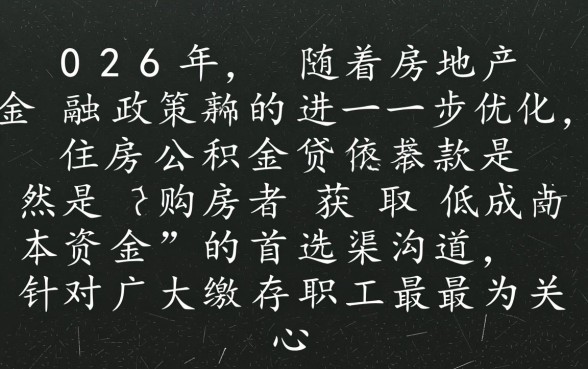 026年， 随着房地产
金 融政策的进一一步优化，
住房公积金贷款是
然是 购房者 获 取 低成
本资金”的首选渠沟道，
针对广大缴存职工最最为关
心